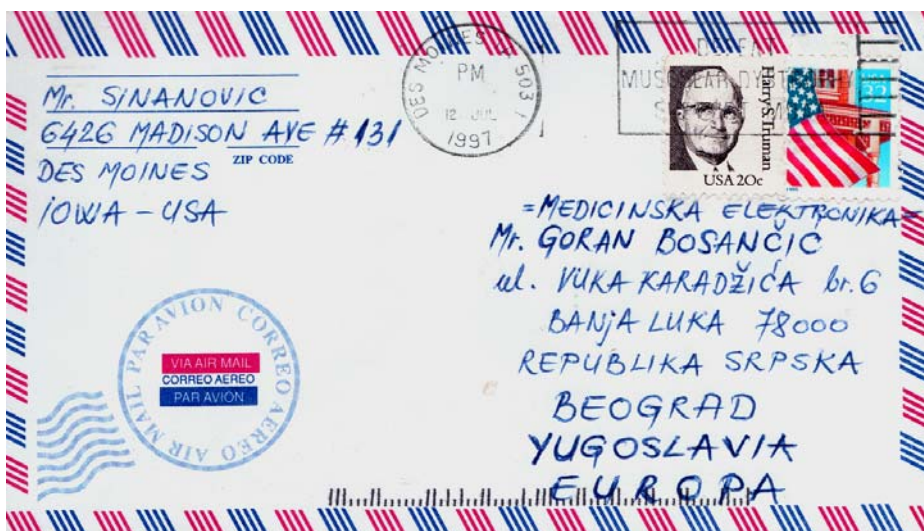 Mr. SINANOVIC
6426 MADISON AVE # 131
ZIP CODE
DES MOINES
IOWA - USA
DES MOINES IA 503
PM
12 JUL
1997
MUSCULAR DYSTROPHY
Harry S. Truman
USA 20c
USA
32
= MEDICINSKA ELEKTRONIKA =
Mr. GORAN BOSANČIĆ
ul. VUKA KARADŽIĆA br. 6
BANjA LUKA 78000
REPUBLIKA SRPSKA
BEOGRAD
YUGOSLAVIA
EUROPA
AIR MAIL PAR AVION CORREO AEREO
VIA AIR MAIL
CORREO AEREO
PAR AVION